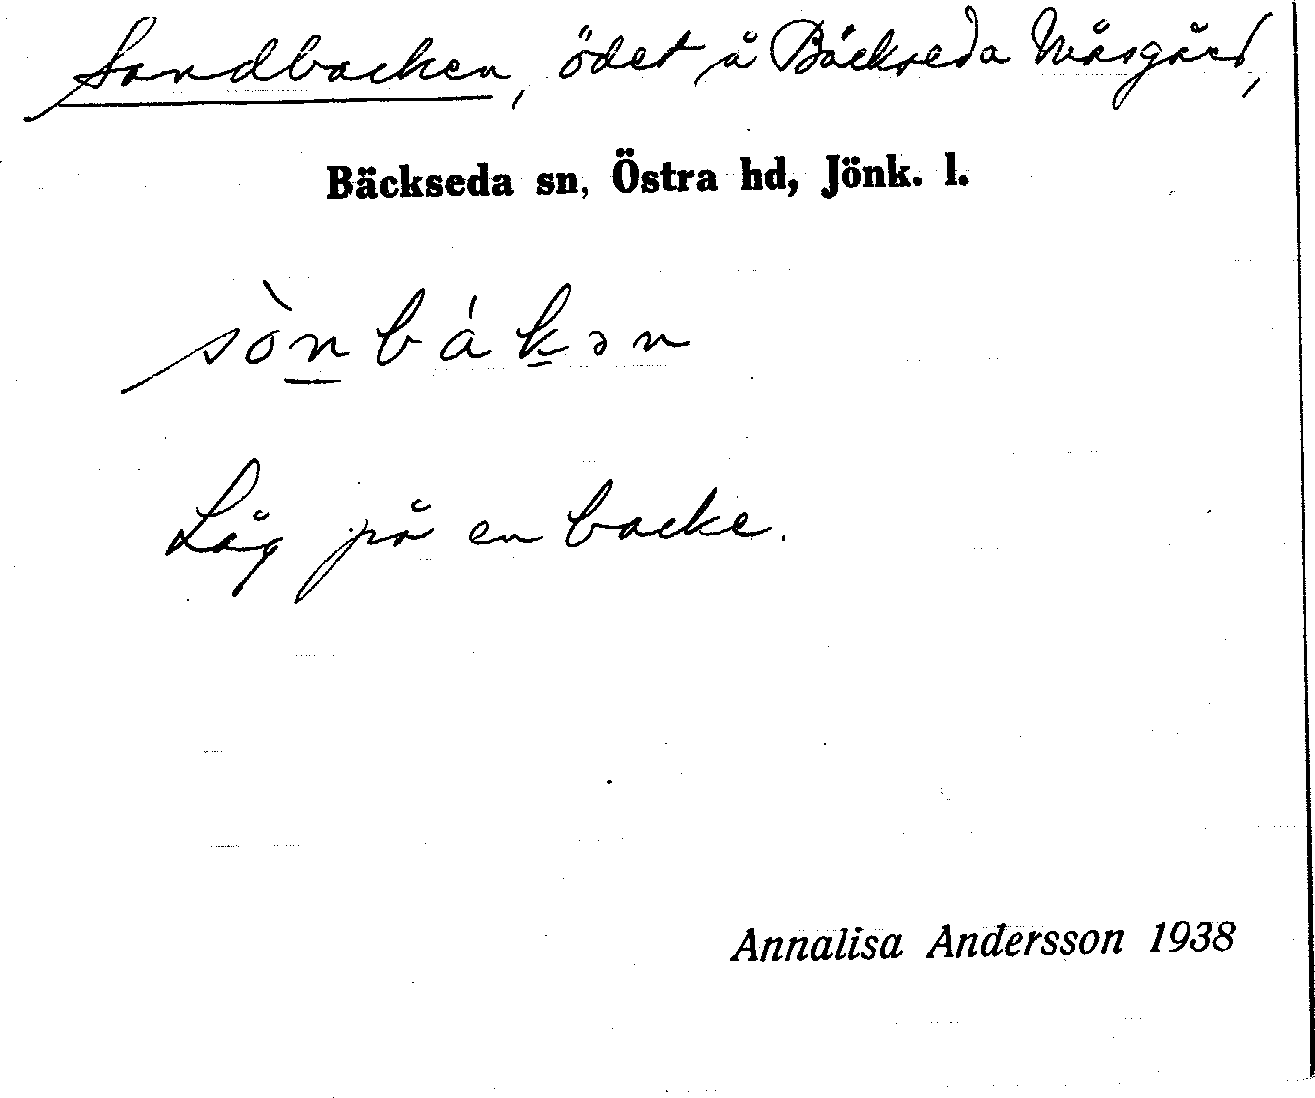 Sandbacken, ödet å Bäckseda Måsgård,
Bäckseda sn, Östra hd, Jönk. l.
sònbákən
Låg på en backe.
Annalisa Andersson 1938